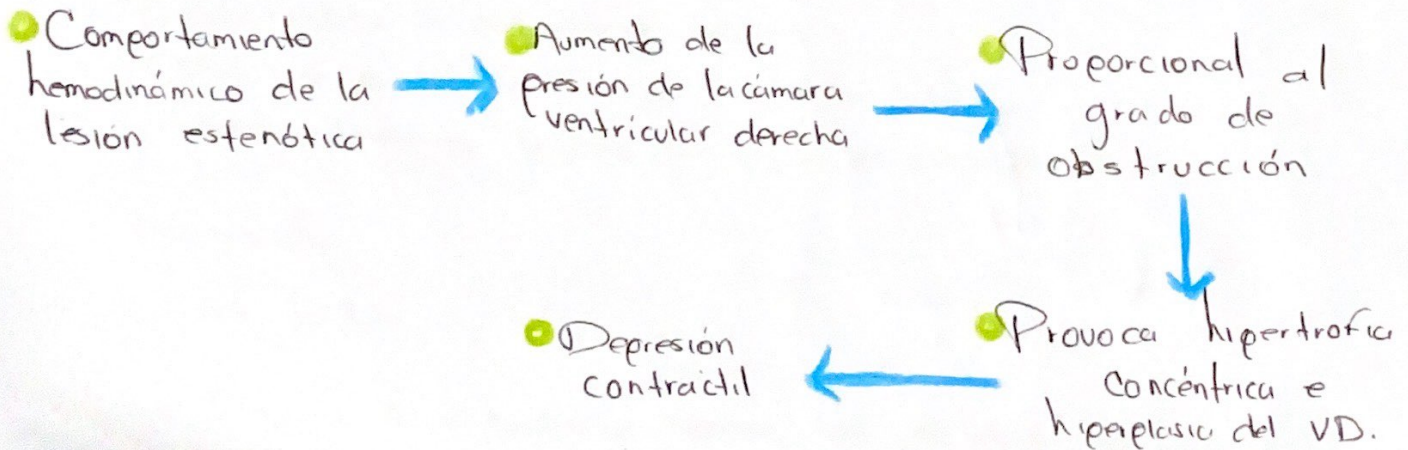 Comportamiento
hemodinámico de la
lesión estenótica
Aumento de la
presión de la cámara
ventricular derecha
Proporcional al
grado de
obstrucción
Provoca hipertrofia
concéntrica e
hiperplasia del VD.
Depresión
contráctil